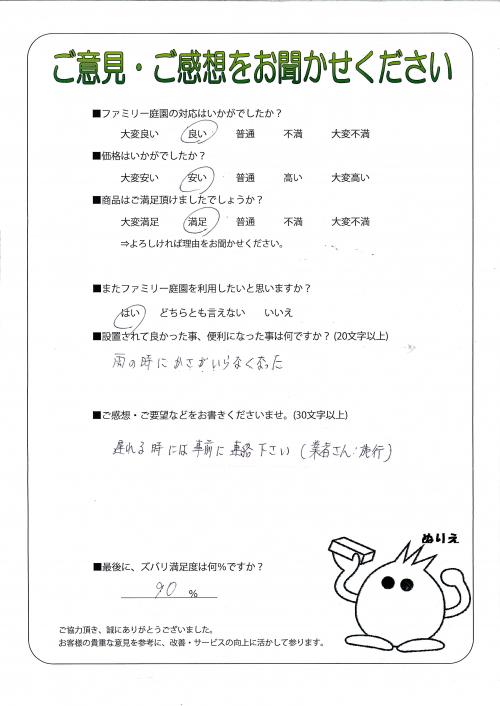 ご意見・ご感想をお聞かせください
■ファミリー庭園の対応はいかがでしたか？
大変良い 良い 普通 不満 大変不満
■価格はいかがでしたか？
大変安い 安い 普通 高い 大変高い
■商品はご満足頂けましたでしょうか？
大変満足 満足 普通 不満 大変不満
⇒よろしければ理由をお聞かせください。
■またファミリー庭園を利用したいと思いますか？
はい どちらとも言えない いいえ
■設置されて良かった事、便利になった事は何ですか？(20文字以上)
雨の時にかさがいらなくなった
■ご感想・ご要望などをお書きくださいませ。(30文字以上)
遅れる時には事前に連絡下さい(業者さん:施行)
ぬりえ
■最後に、ズバリ満足度は何％ですか？
90 %
ご協力頂き、誠にありがとうございました。
お客様の貴重な意見を参考に、改善・サービスの向上に活かして参ります。